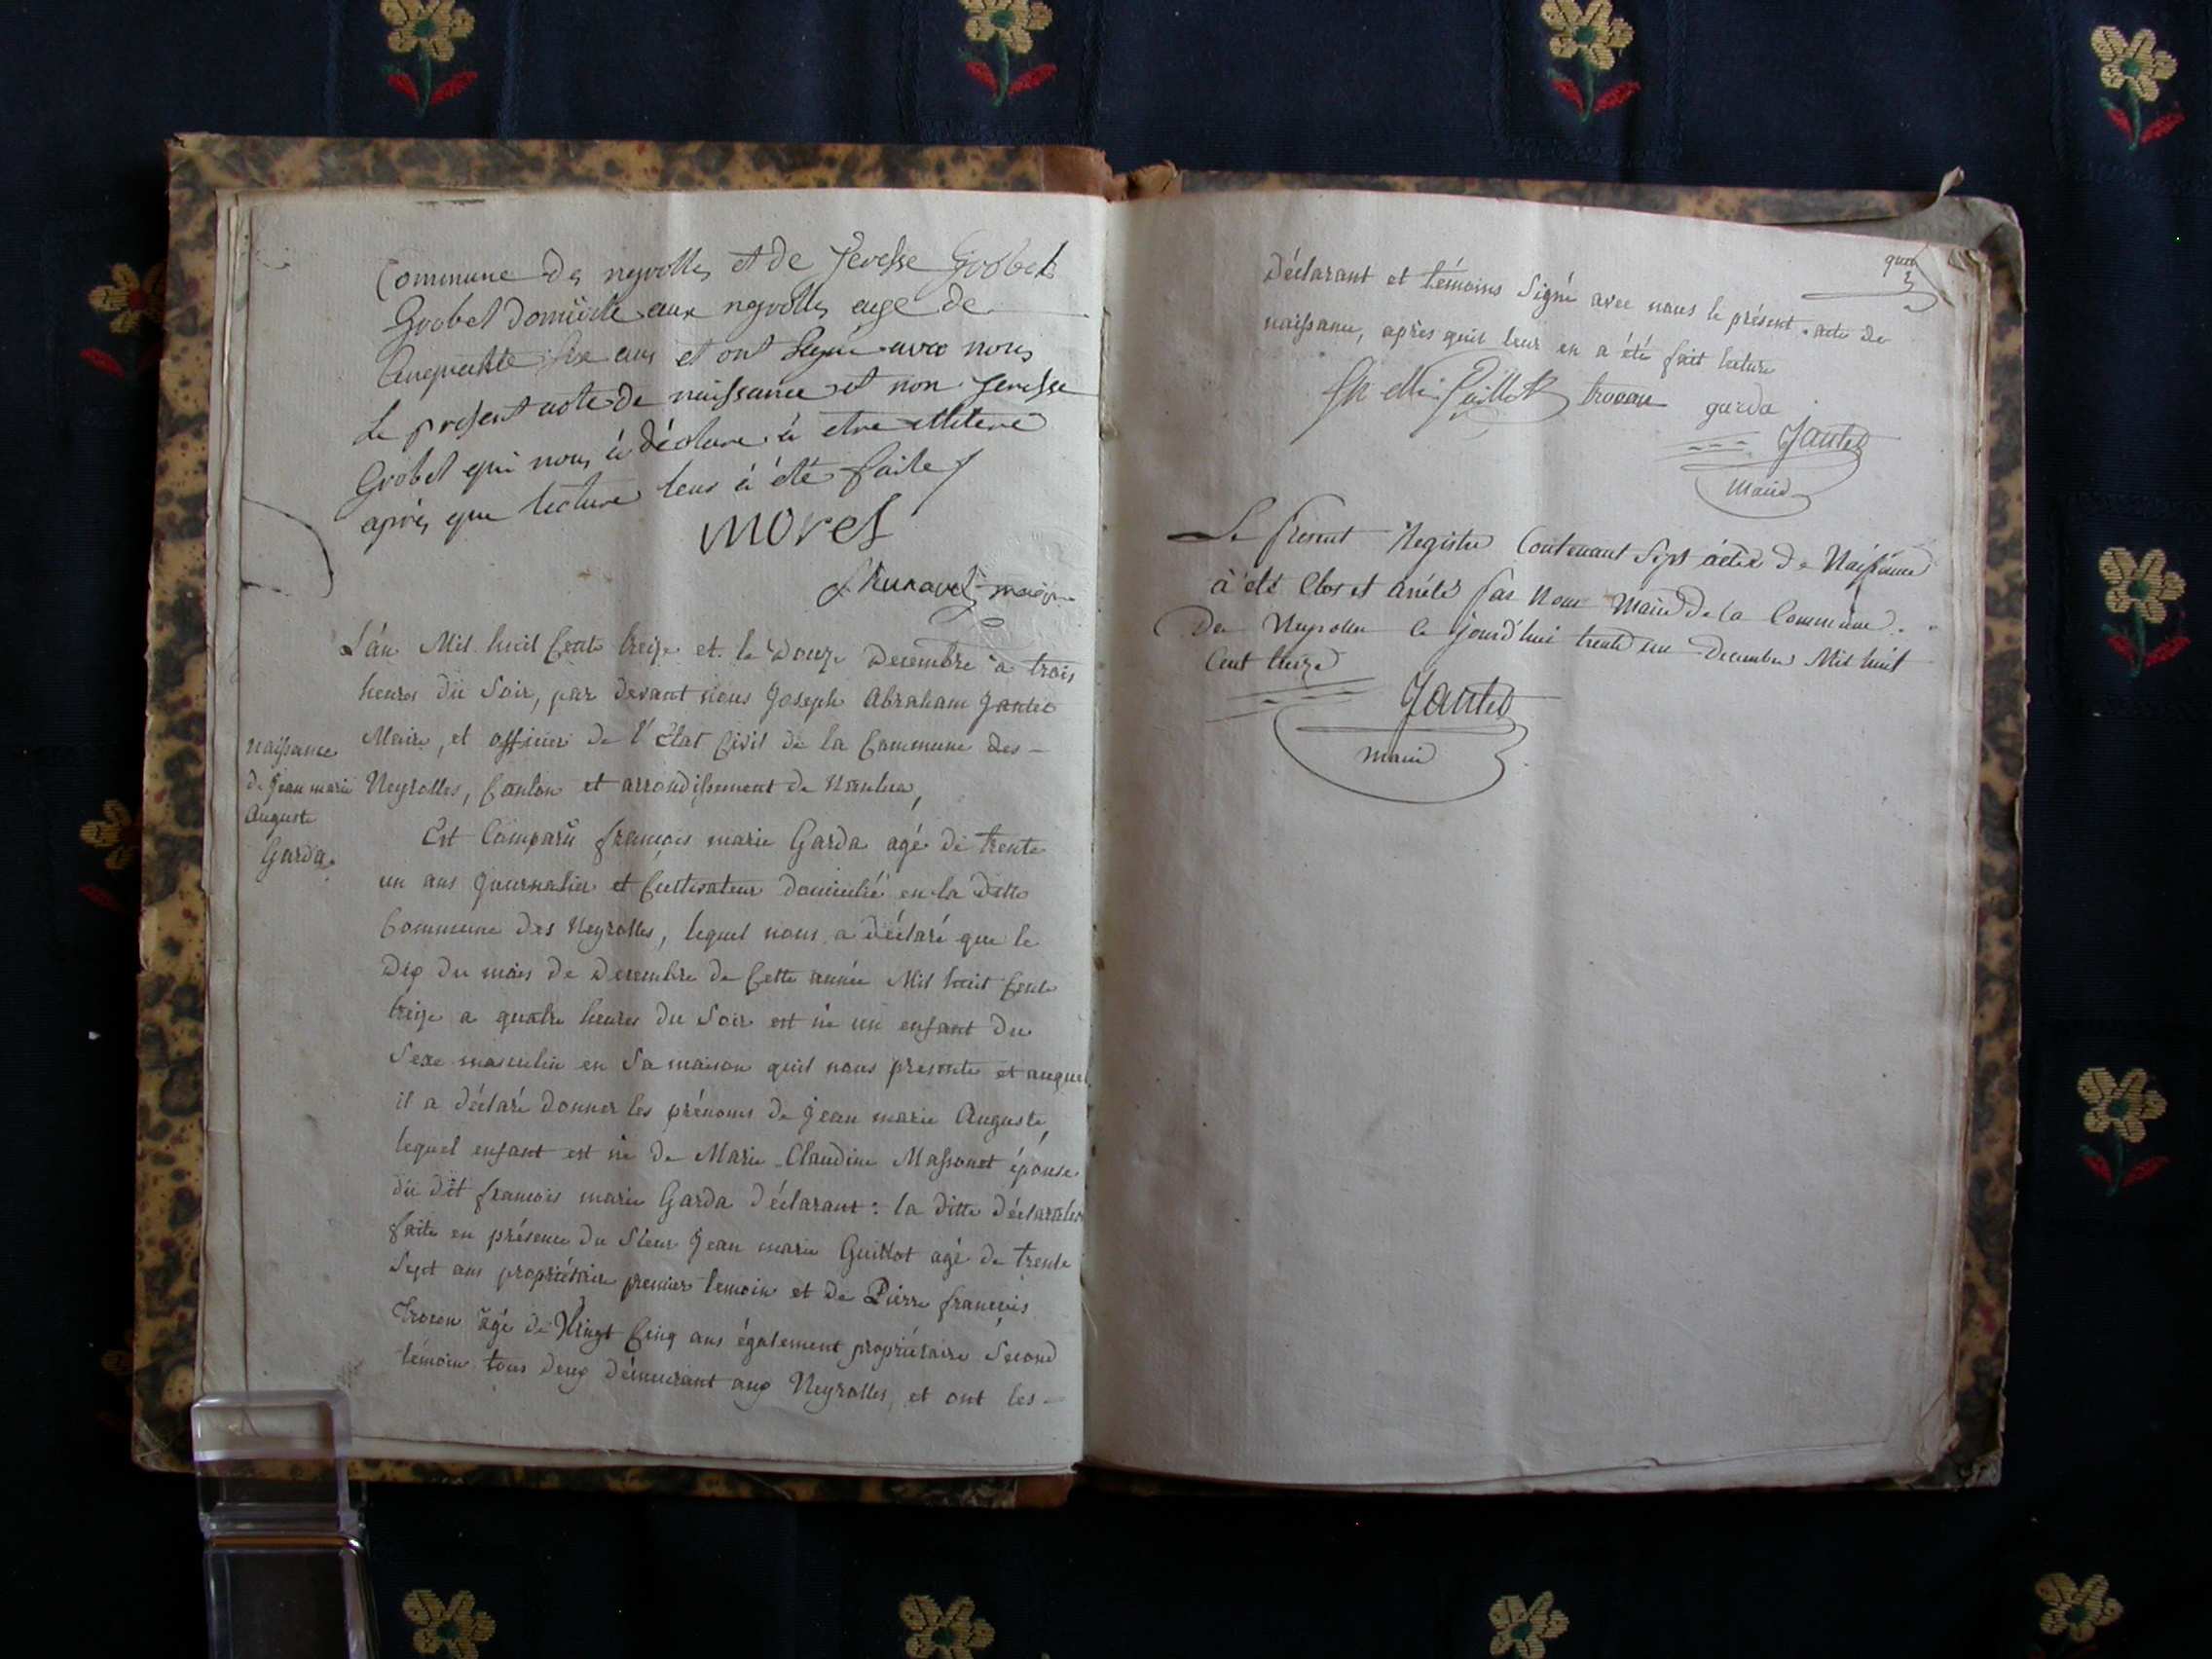 Commune des neyrolles et de Jeresse Grobet
Grobet domicile aux neyrolles age de
Cinquante six ans et ont signé avec nous
Le present acte de naissance et non Jeresse
Grobet qui nous à déclaré à etre illiteré
après que lecture leus à été faite
MOREL
maire
L'an Mil huit Cent treize et le Douze Decembre a trois
heures du Soir, par devant nous Joseph Abraham Jantet
Maire, et officier de l'État Civil de la Commune des
Neyrolles, Canton et arrondissement de Nantua,
naissance
de jean marie
Auguste
Garda.
Est Comparu françois marie Garda agé de trente
un ans Journalier et Cultivateur domicilié en la ditte
Commune des Neyrolles, lequel nous a déclaré que le
Dix du mois de Decembre de Cette année Mil huit Cent
treize a quatre heures du Soir est né un enfant du
Sexe masculin en Sa maison quil nous presente et auquel
il a déclaré donner les prénoms de jean marie Auguste,
lequel enfant est né de Marie Claudine Massonet épouse
du dit françois marie Garda déclarant : la ditte déclaration
faite en présence du Sieur Jean marie Guillot agé de trente
Sept ans propriétaire premier temoin et de Pierre françois
Trocon agé de Vingt Cinq ans également propriétaire Second
témoin tous deux démeurant aux Neyrolles, et ont les
déclarant et témoins Signé avec nous le présent acte de
naissance, après quil leur en a été fait lecture
Guillot trocon garda
Jantet
Maire
Le Présent Registre Contenant Sept actes de Naissance
à été Clos et Arrété Par Nous Maire De la Commune
Des Neyrolles Ce jourd'hui trente un Decembre Mil huit
Cent treize
Jantet
maire